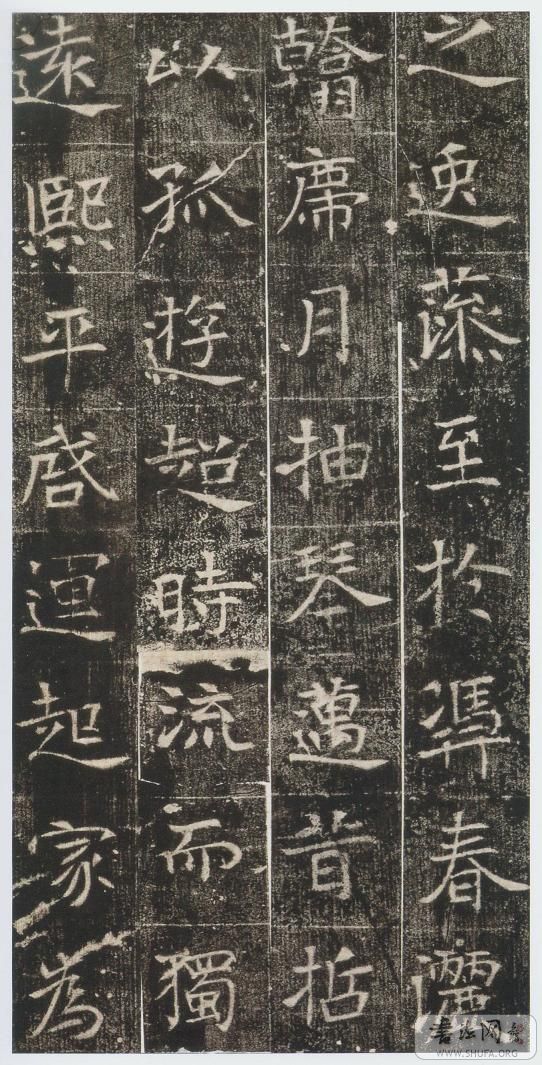 之逸藻至於憑春灑
翰席月抽琴邁昔哲
以孤遊超時流而獨
遠熙平啓運起家為
書法网
WWW.SHUFA.ORG